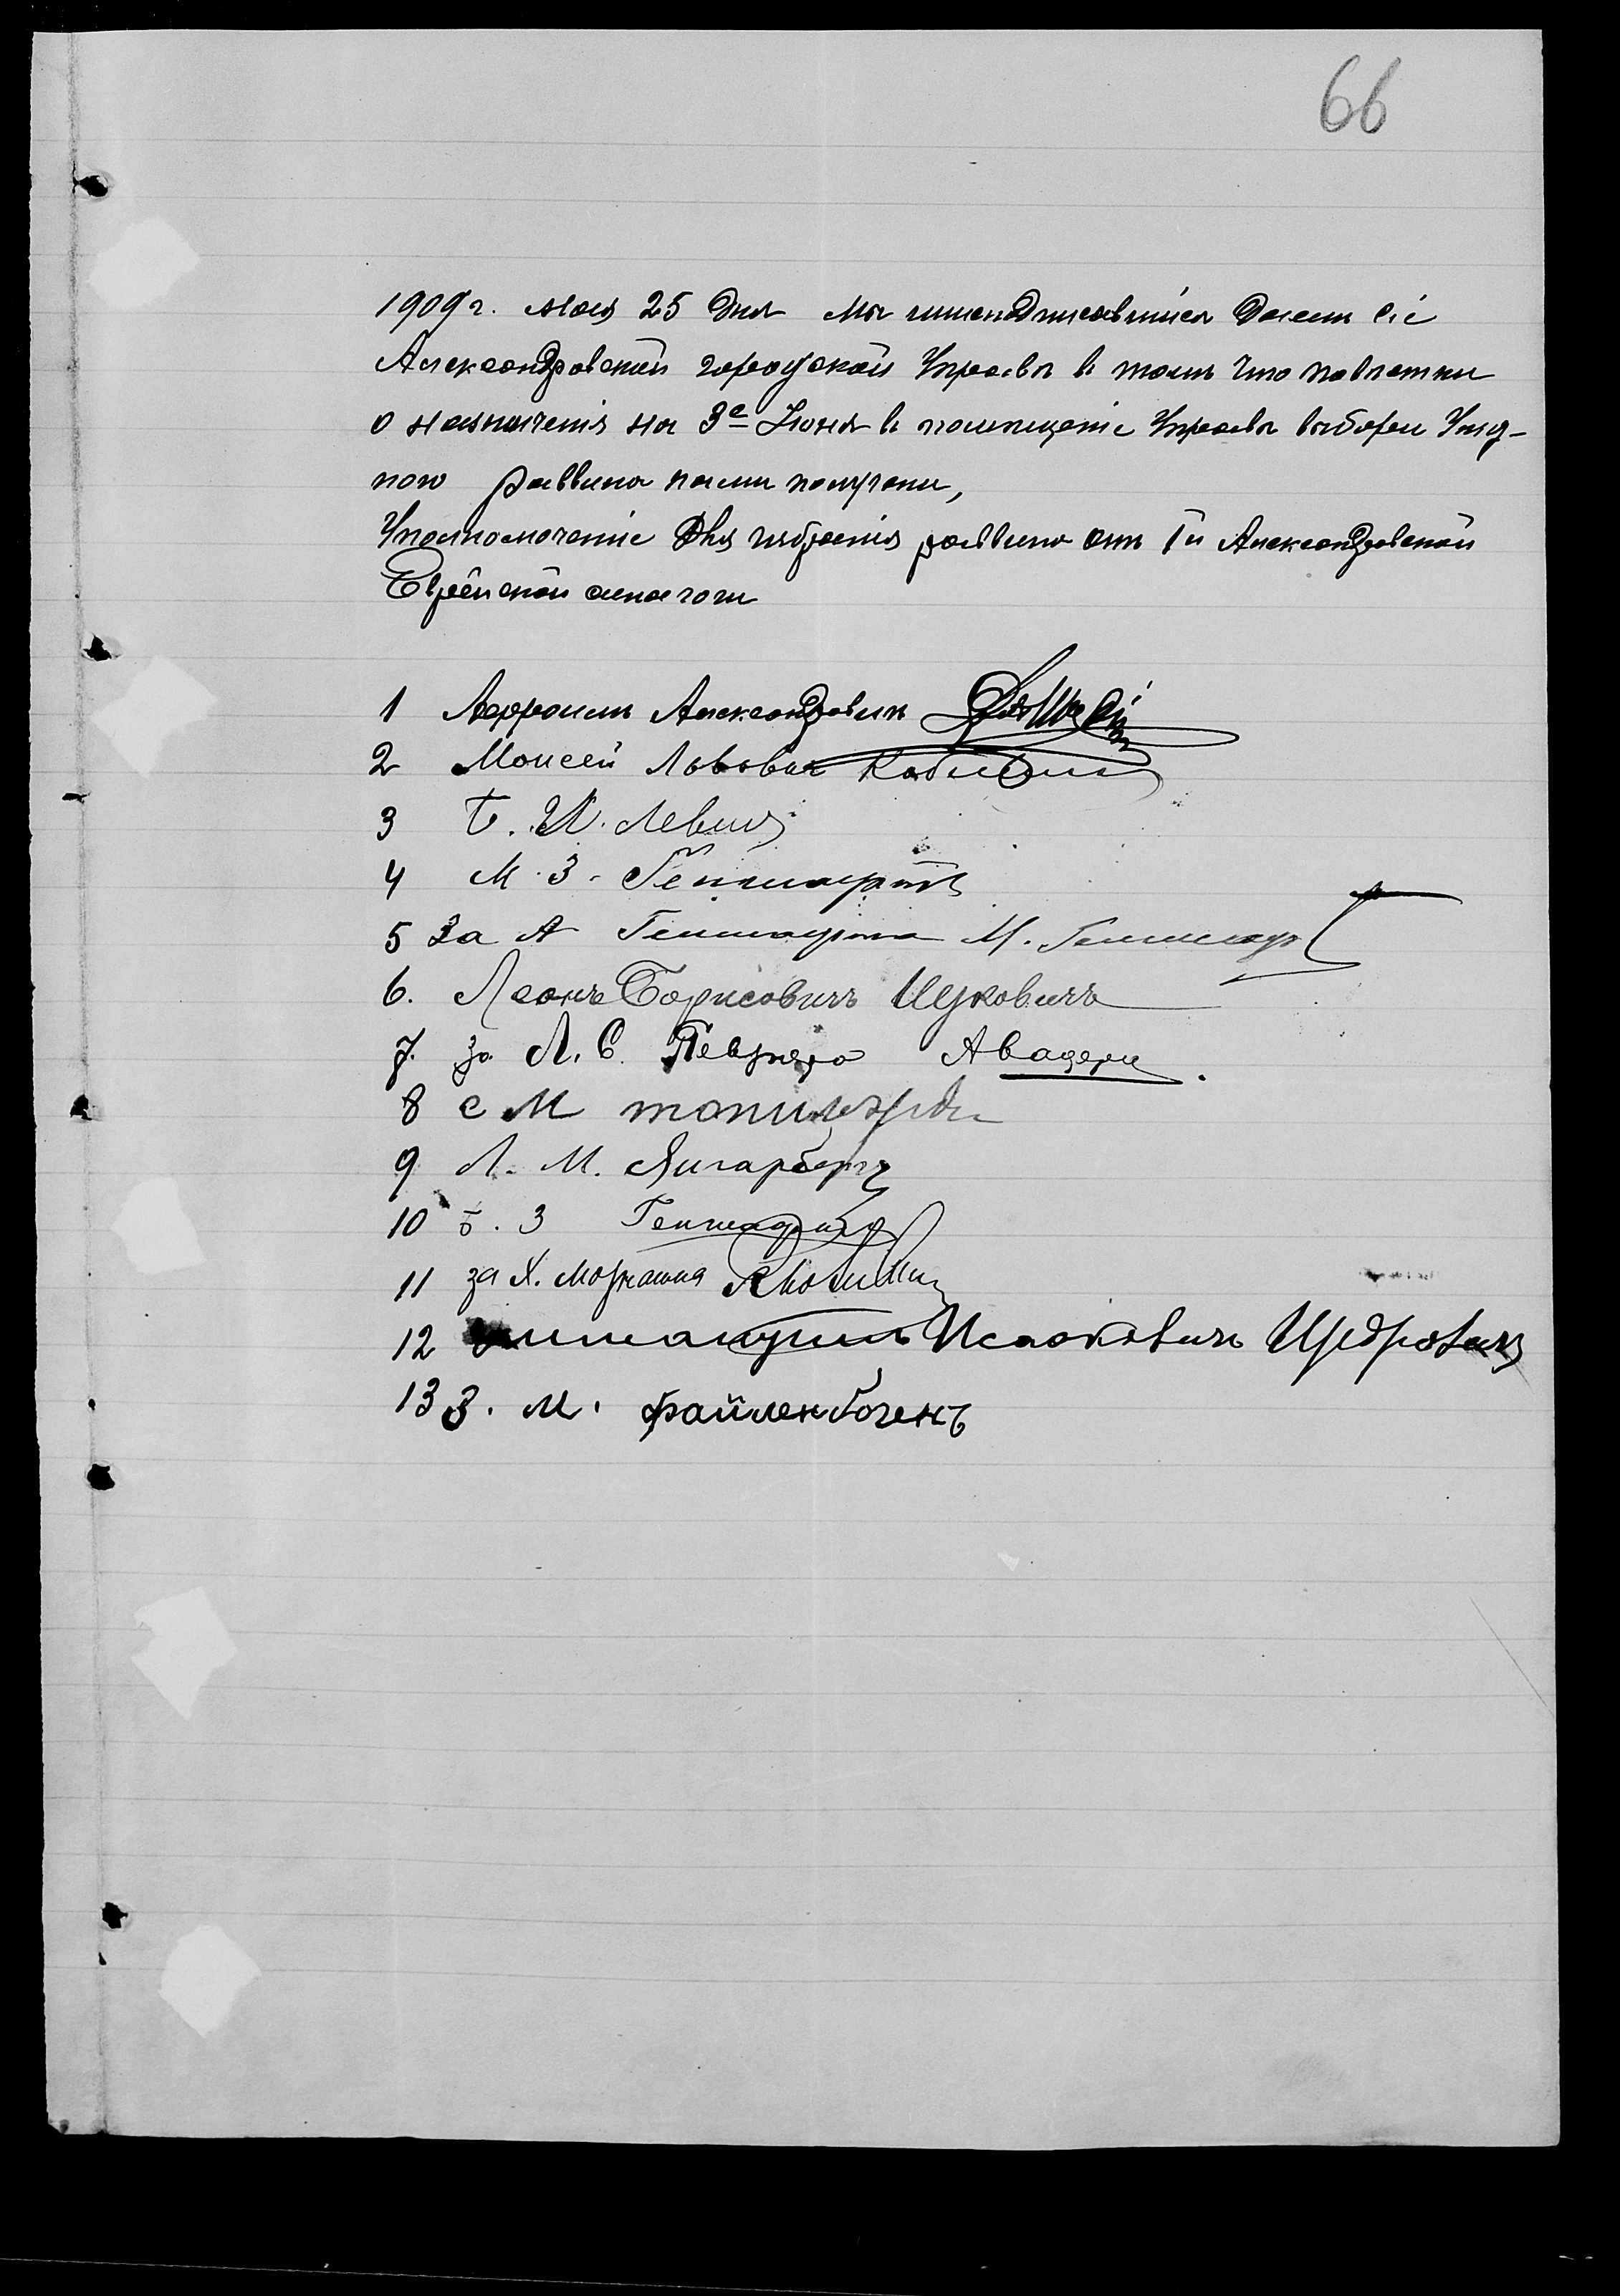 66
1909 г. мая 25 дня мы нижеподписавшіеся даемъ сіе
Александровской городской Управы в томъ что повѣстки
о назначенія на 3е Іюня в помещеніе Управы выборы Уезд-
ного раввина нами получены,
Уполномоченіе для избранія раввина отъ 1й Александровской
Еврейской синагоги
1 Абрамъ Александрович
2 Моисей Львович
3 Б. И. Левинъ
4 М. З. Геншафтъ
5 За А Геншафта М. Геншафт
6. Леонъ Борисовичъ Ицковичъ
7. за Л. С. Певзнера
8 С М
9 Л. М. Вигарбергъ
10 Б. З Геншафтъ
11 за Х. Моргашия
12 Исаковичъ Цедровичъ
13 З. М. Файленбогенъ